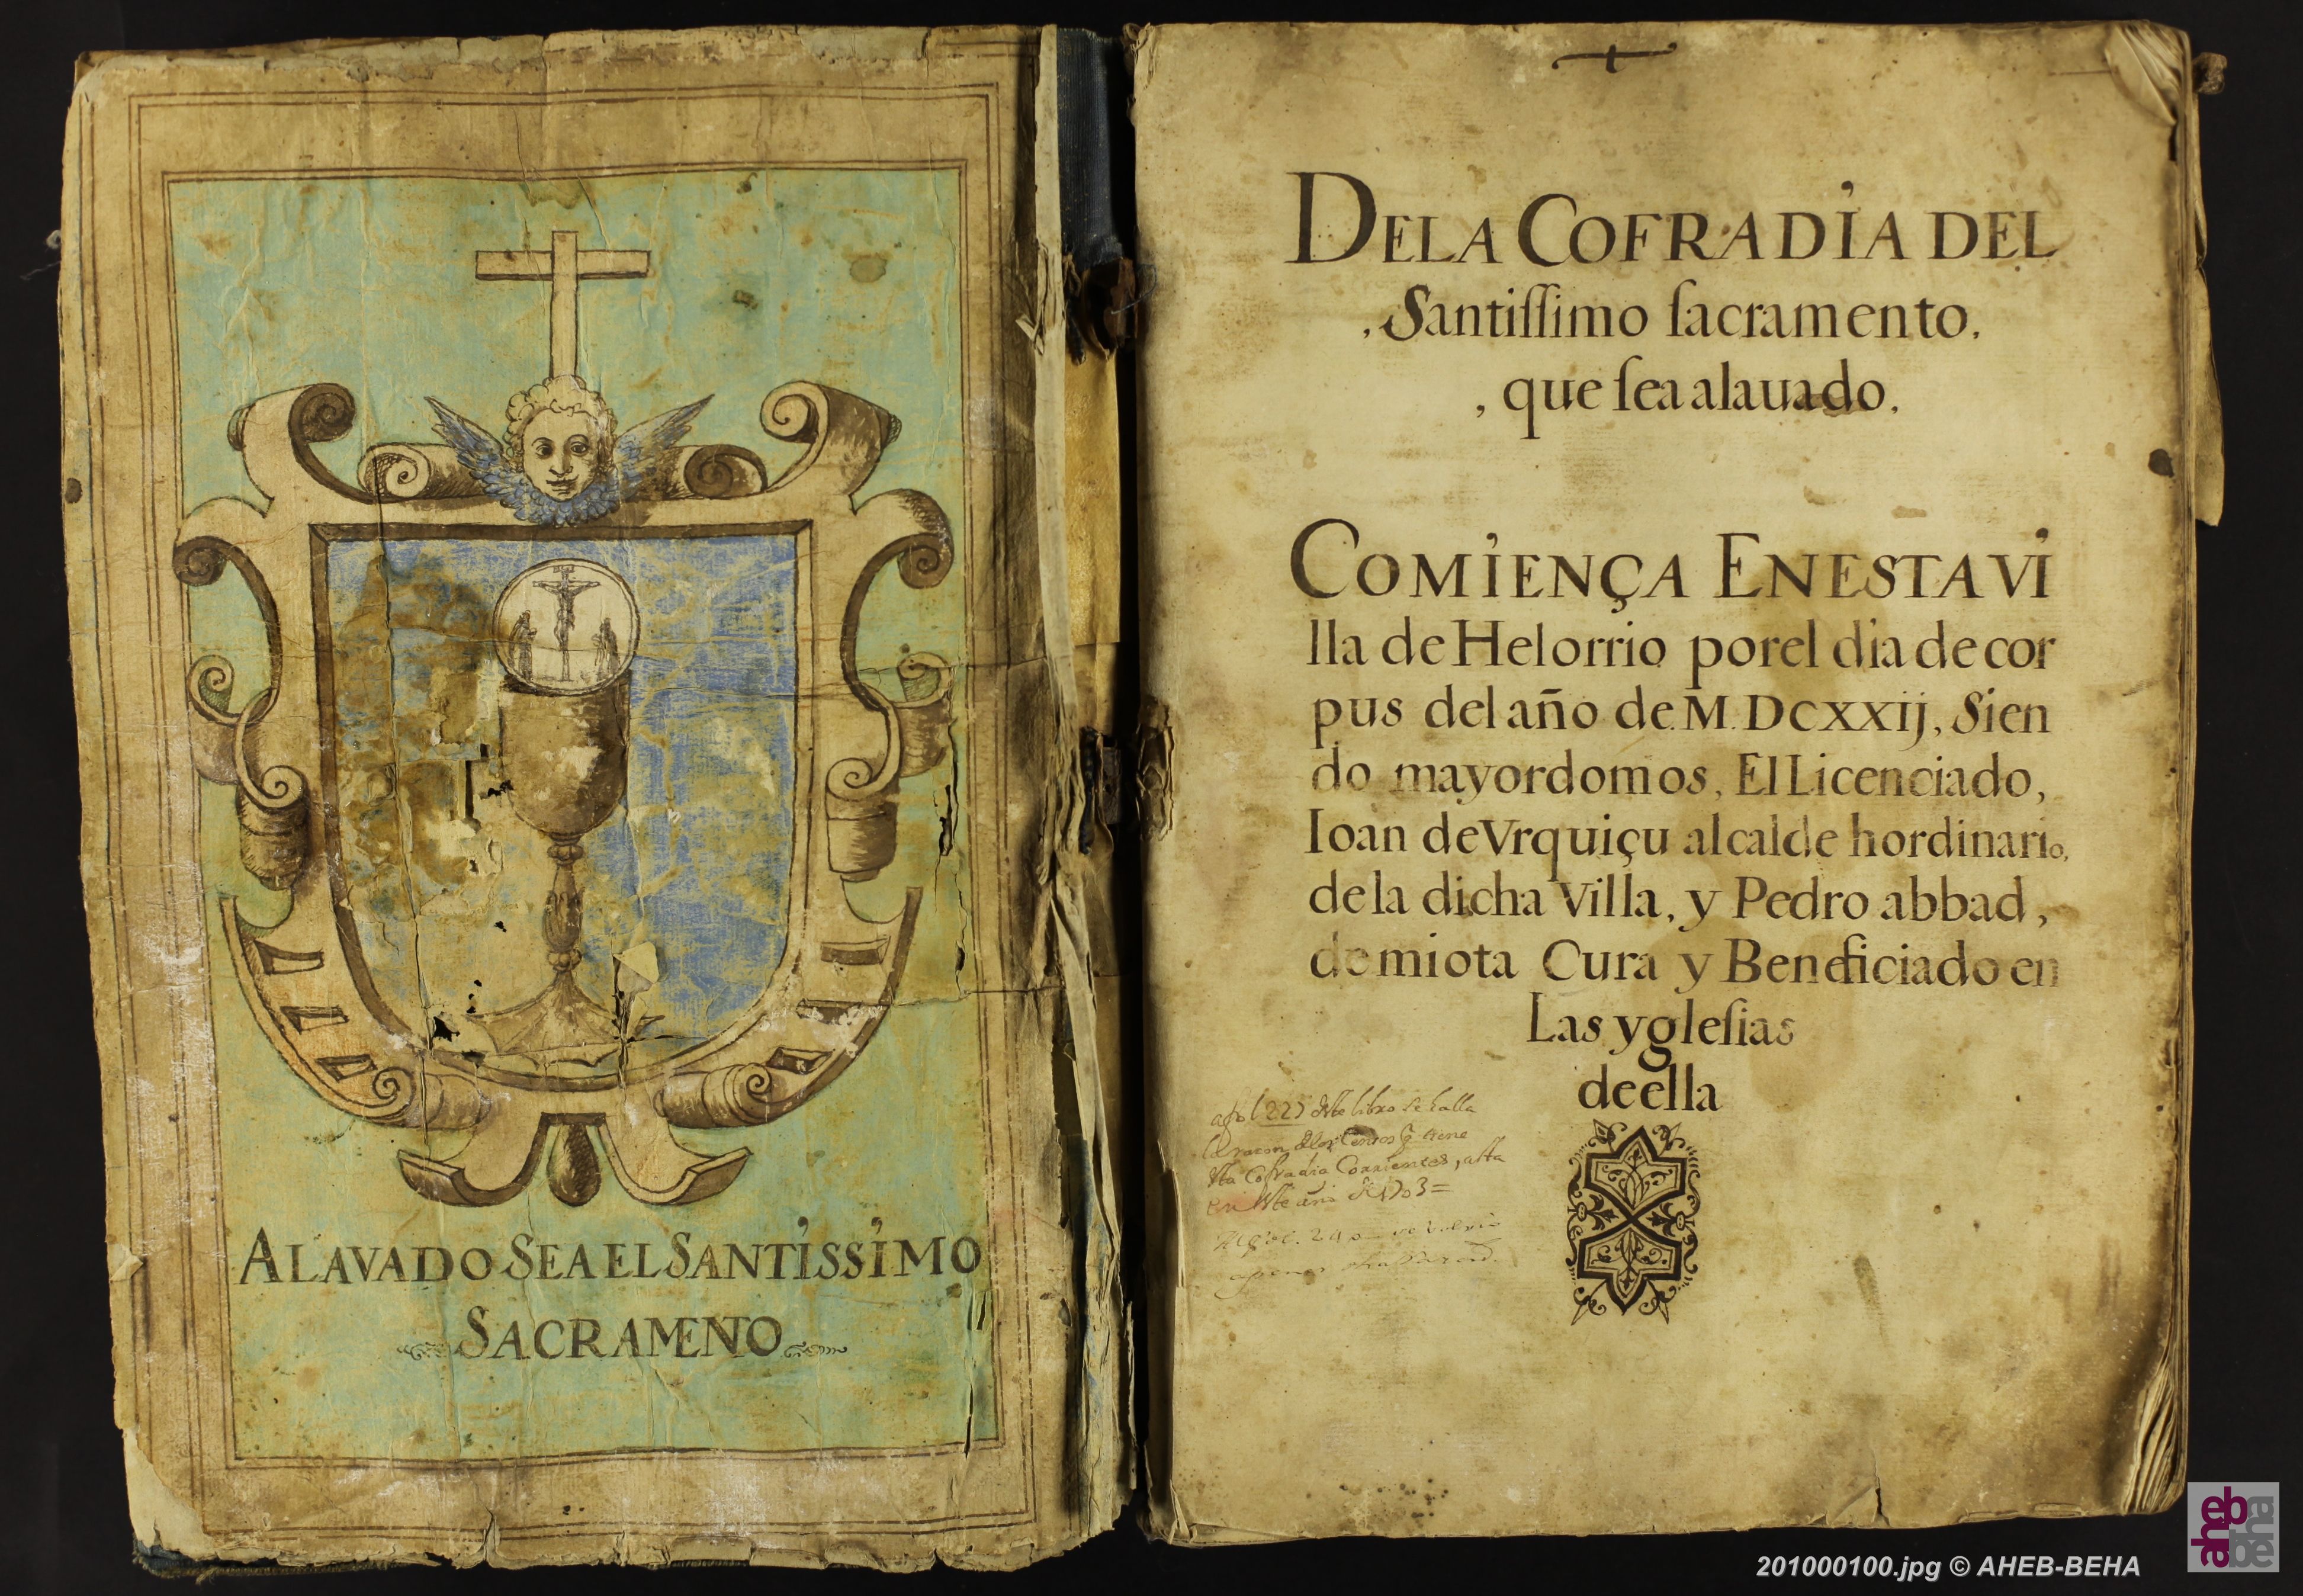 ALAVADO SEA EL SANTISSIMO
SACRAMENTO
DE LA COFRADIA DEL
, Santissimo sacramento,
, que sea alauado,
COMIENÇA EN ESTA VI
lla de Helorrio por el dia de cor
pus del año de M.DCXXIJ, Sien
do mayordomos, El Licenciado,
Ioan de Vrquiçu alcalde hordinario,
de la dicha Villa, y Pedro abbad,
de miota Cura y Beneficiado en
Las yglesias
de ella
a fol 225 deste libro se halla
la raçon de los Censos q tiene
esta Cofradia Corrientes, asta
en este año de 1703=
201000100.jpg © AHEB-BEHA
aheb
beha